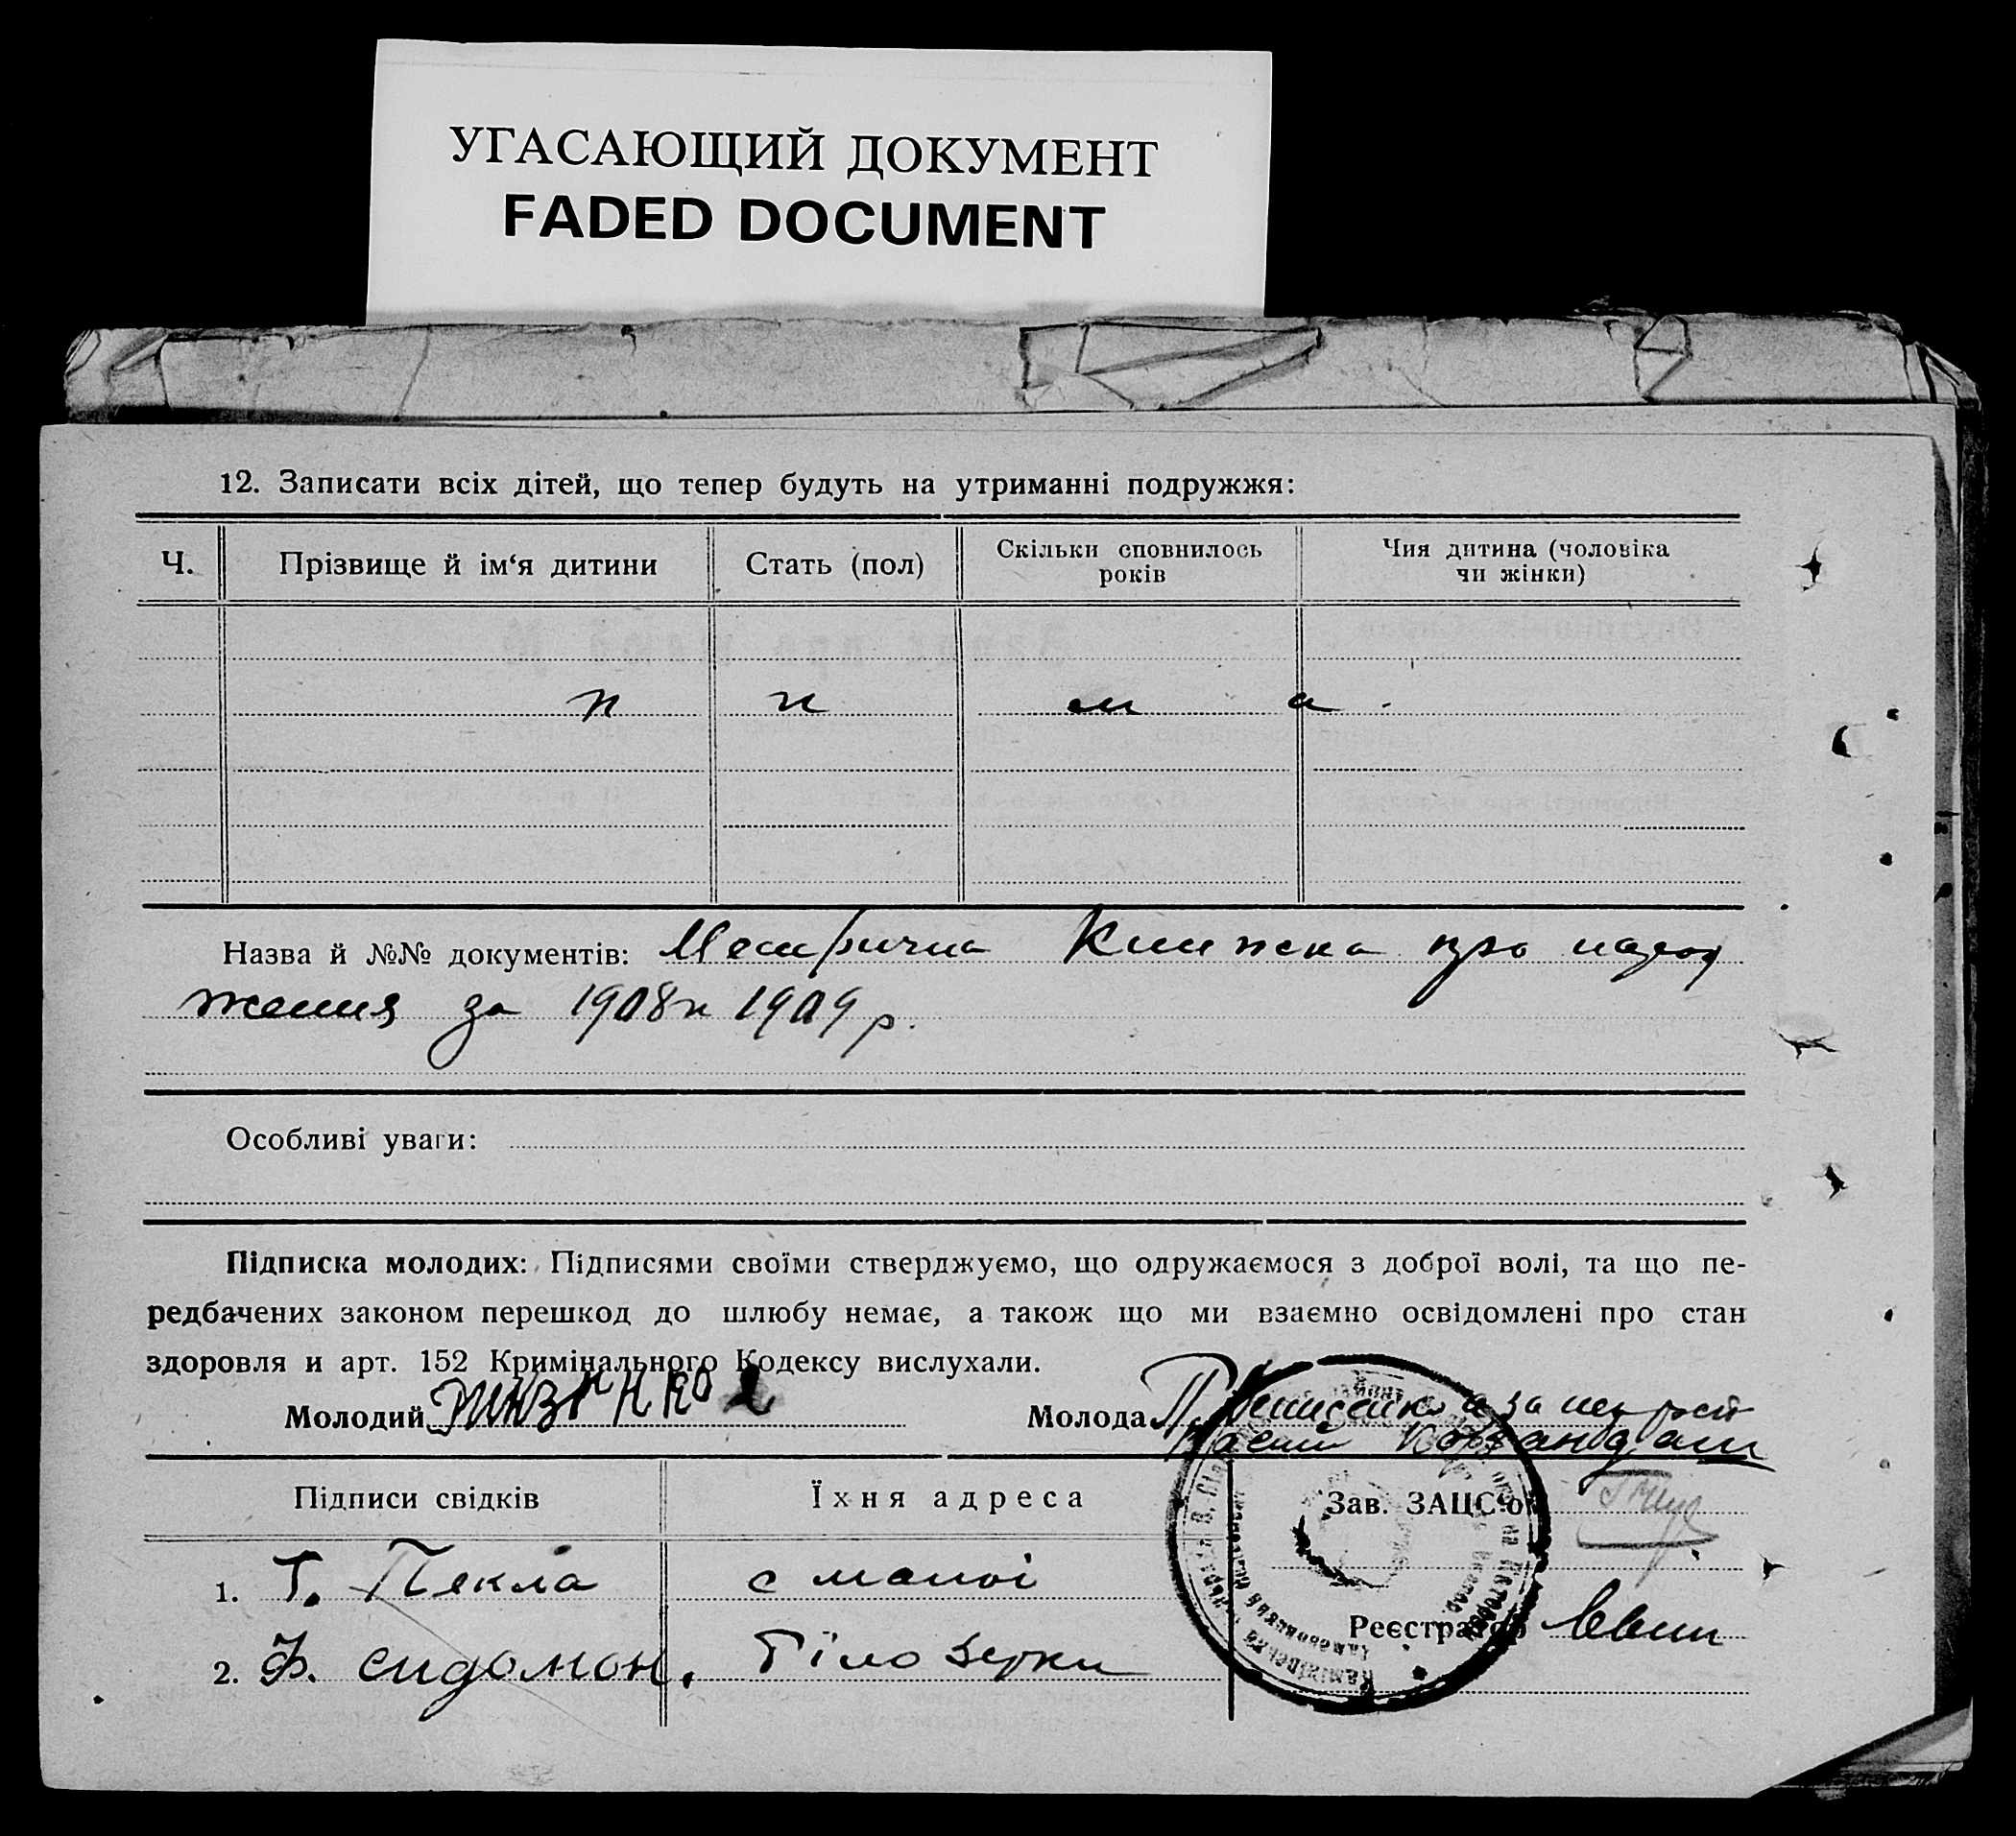 УГАСАЮЩИЙ ДОКУМЕНТ
FADED DOCUMENT
12. Записати всіх дітей, що тепер будуть на утриманні подружжя:
Ч. Прізвище й ім‘я дитини Стать (пол) Скільки сповнилось років Чия дитина (чоловіка чи жінки)
Назва й №№ документів: Метрична Книжка про народ
ження за 1908 и 1909 р.
Особливі уваги:
Підписка молодих: Підписями своїми стверджуємо, що одружаємося з доброї волі, та що пе-
редбачених законом перешкод до шлюбу немає, а також що ми взаємно освідомлені про стан
здоровля и арт. 152 Кримінального Кодексу вислухали.
Молодий
Молода за
Підписи свідків Їхня адреса Зав. ЗАЦС'ом
1. Т. Пекла с
Реєстратор
2. Ф. сидомон. Білозерки